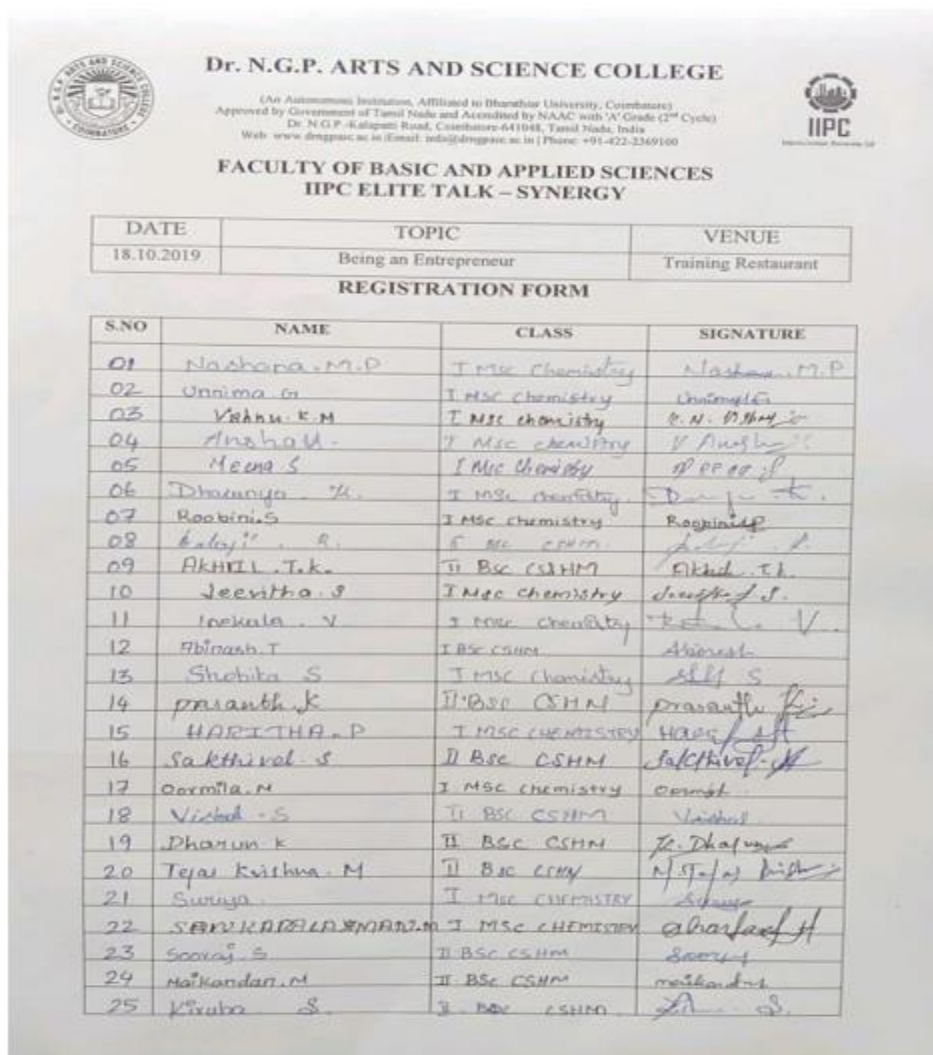 Dr. N.G.P. ARTS AND SCIENCE COLLEGE
(An Autonomous Institution, Affiliated to Bharathiar University, Coimbatore)
Approved by Government of Tamil Nadu and Accredited by NAAC with 'A' Grade (2nd Cycle)
Dr. N.G.P.-Kalapatti Road, Coimbatore-641048, Tamil Nadu, India
Web: www.drngpasc.ac.in |Email: info@drngpasc.ac.in | Phone: +91-422-2369100
IIPC
FACULTY OF BASIC AND APPLIED SCIENCES
IIPC ELITE TALK – SYNERGY
DATE TOPIC VENUE
18.10.2019 Being an Entrepreneur Training Restaurant
REGISTRATION FORM
S.NO NAME CLASS SIGNATURE
01 Nashana.M.P I Msc Chemistry M.P
02 Unnima G I MSC Chemistry
03 Vishnu.K.M I MSC chemistry
04 I MSC chemistry
05 Meena S I Msc Chemistry
06 Dharanya K. I MSc chemistry
07 Roobini.S I MSC chemistry
08 Balaji R.
09 AKHIL.T.K. II BSc CSHM Akhil.T.k.
10 Jeevitha.S I Msc chemistry
11 V I msc chemistry
12 Abinash.T I BSC CSHM Abinash
13 Shobika S I msc Chemistry S
14 prasanth.K II BSc CSHM prasanth
15 HARITHA.P I MSC CHEMISTRY
16 Sakthivel.S II BSc CSHM Sakthivel
17 Oormila.M I MSC chemistry
18 Vishal.S II BSC CSHM Vishal
19 Dharun K II BSC CSHM K. Dharun
20 Tejas Krishna.M II BSC CSHM
21 Suriya I MSC CHEMISTRY
22 I MSC CHEMISTRY
23 Sooraj.S II BSC CSHM Sooraj
24 Maikandan.M II BSC CSHM
25 Kiruba S. CSHM S.